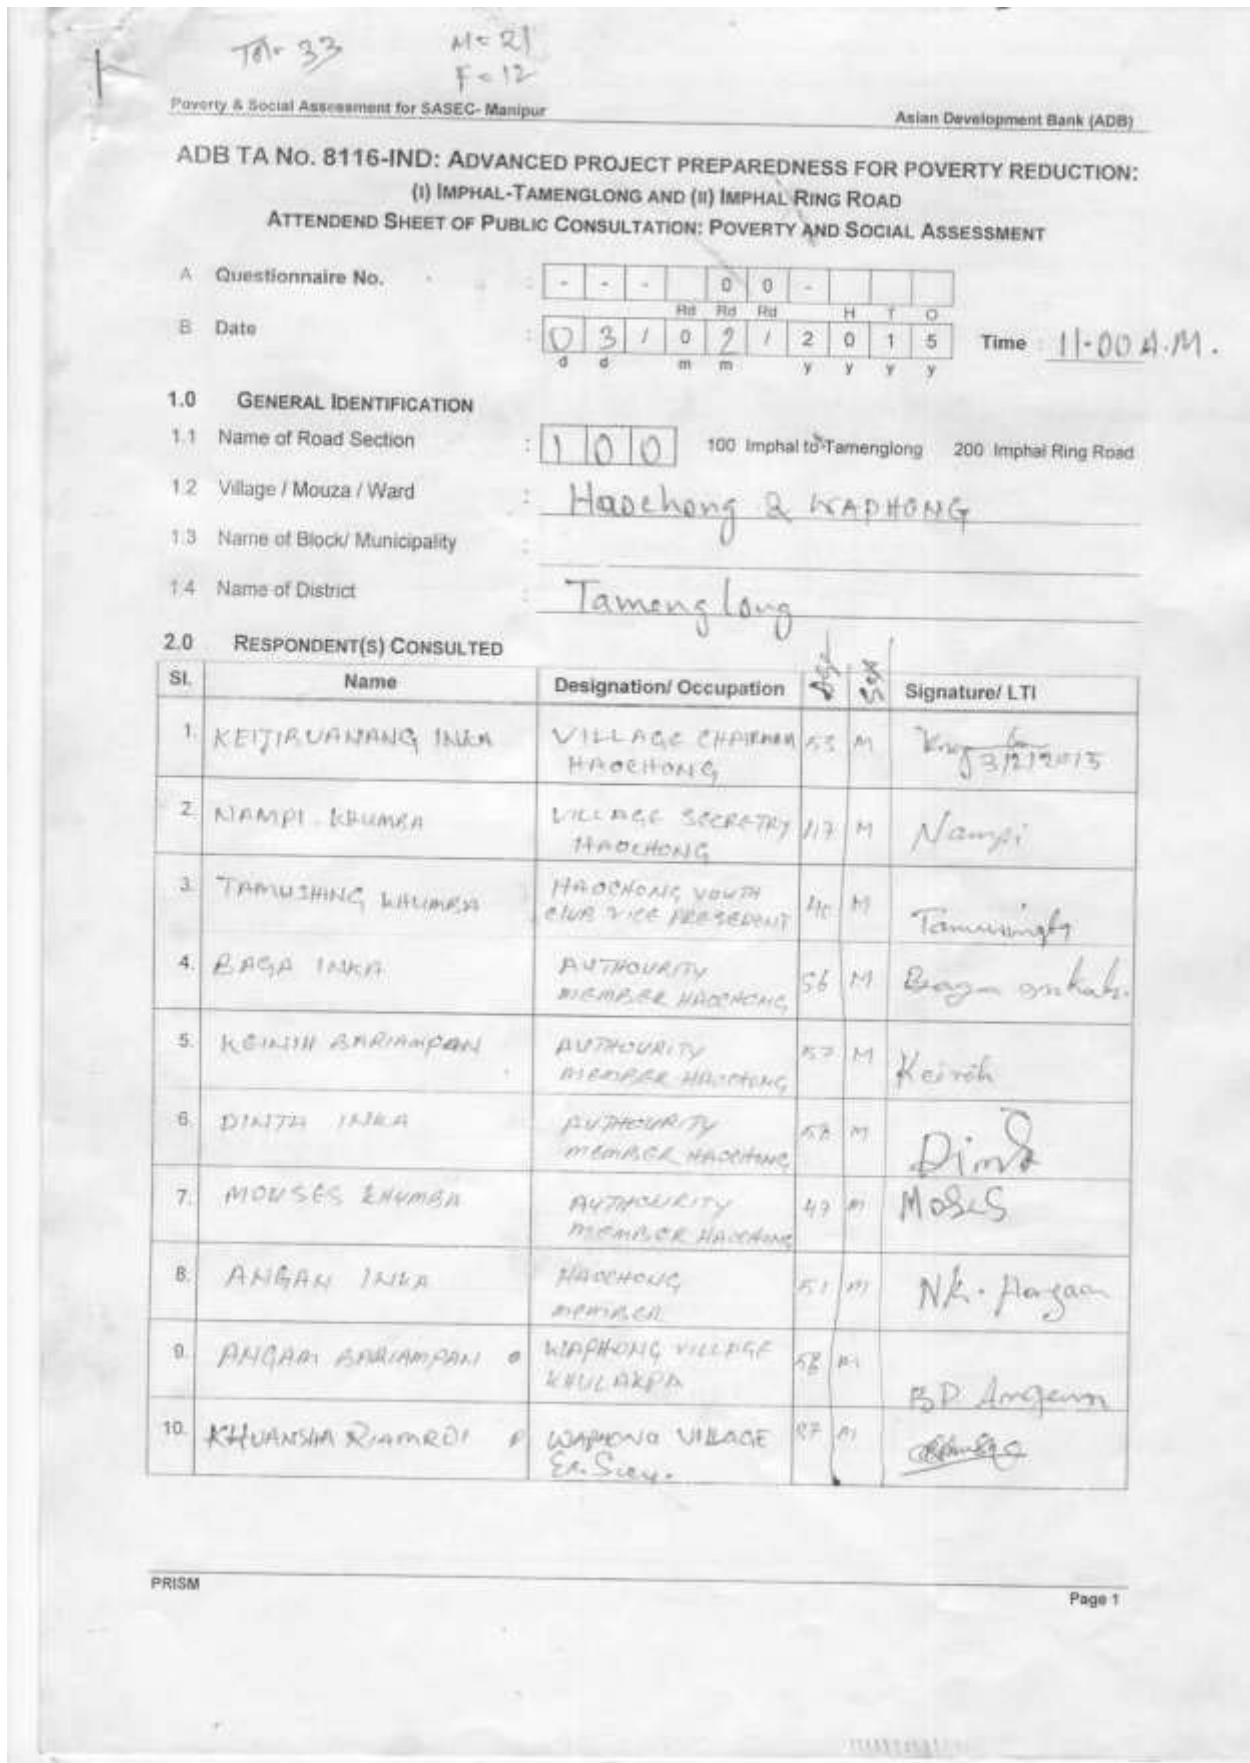 Tot- 33 M= 21
F= 12
Poverty & Social Assessment for SASEC- Manipur Asian Development Bank (ADB)
ADB TA No. 8116-IND: ADVANCED PROJECT PREPAREDNESS FOR POVERTY REDUCTION:
(I) IMPHAL-TAMENGLONG AND (II) IMPHAL RING ROAD
ATTENDEND SHEET OF PUBLIC CONSULTATION: POVERTY AND SOCIAL ASSESSMENT
A Questionnaire No. : - - - 0 0 -
Rd Rd Rd H T O
B Date : 0 3 / 0 2 / 2 0 1 5 Time : 11.00 A.M.
d d m m y y y y
1.0 GENERAL IDENTIFICATION
1.1 Name of Road Section : 1 0 0 100 Imphal to Tamenglong 200 Imphal Ring Road
1.2 Village / Mouza / Ward : Haochong & WAPHONG
1.3 Name of Block/ Municipality :
1.4 Name of District : Tamenglong
2.0 RESPONDENT(S) CONSULTED
Sl. Name Designation/ Occupation Age Sex Signature/ LTI
1. KEIJIRUANANG INKA VILLAGE CHAIRMAN 53 M
HAOCHONG 3/2/2015
2. NAMPI KHUMBA VILLAGE SECRETRY 47 M Nampi
HAOCHONG
3. TAMUSHING KHUMBA HAOCHONG YOUTH 40 M
CLUB VICE PRESEDENT
4. BAGA INKA AUTHOURITY 56 M Baga
MEMBER HAOCHONG
5. BARIAMPAN AUTHOURITY 57 M
MEMBER HAOCHONG
6. INKA AUTHOURITY M
MEMBER HAOCHONG
7. MOUSES KHUMBA AUTHOURITY M MOSES
MEMBER HAOCHONG
8. ANGAN INKA HAOCHONG 51 M
MEMBER
9. ANGAM BARIAMPAN WAPHONG VILLAGE 58 M
KHULAKPA BD Angam
10. KHUANSHA RIAMROI WAPHONG VILLAGE M
PRISM Page 1